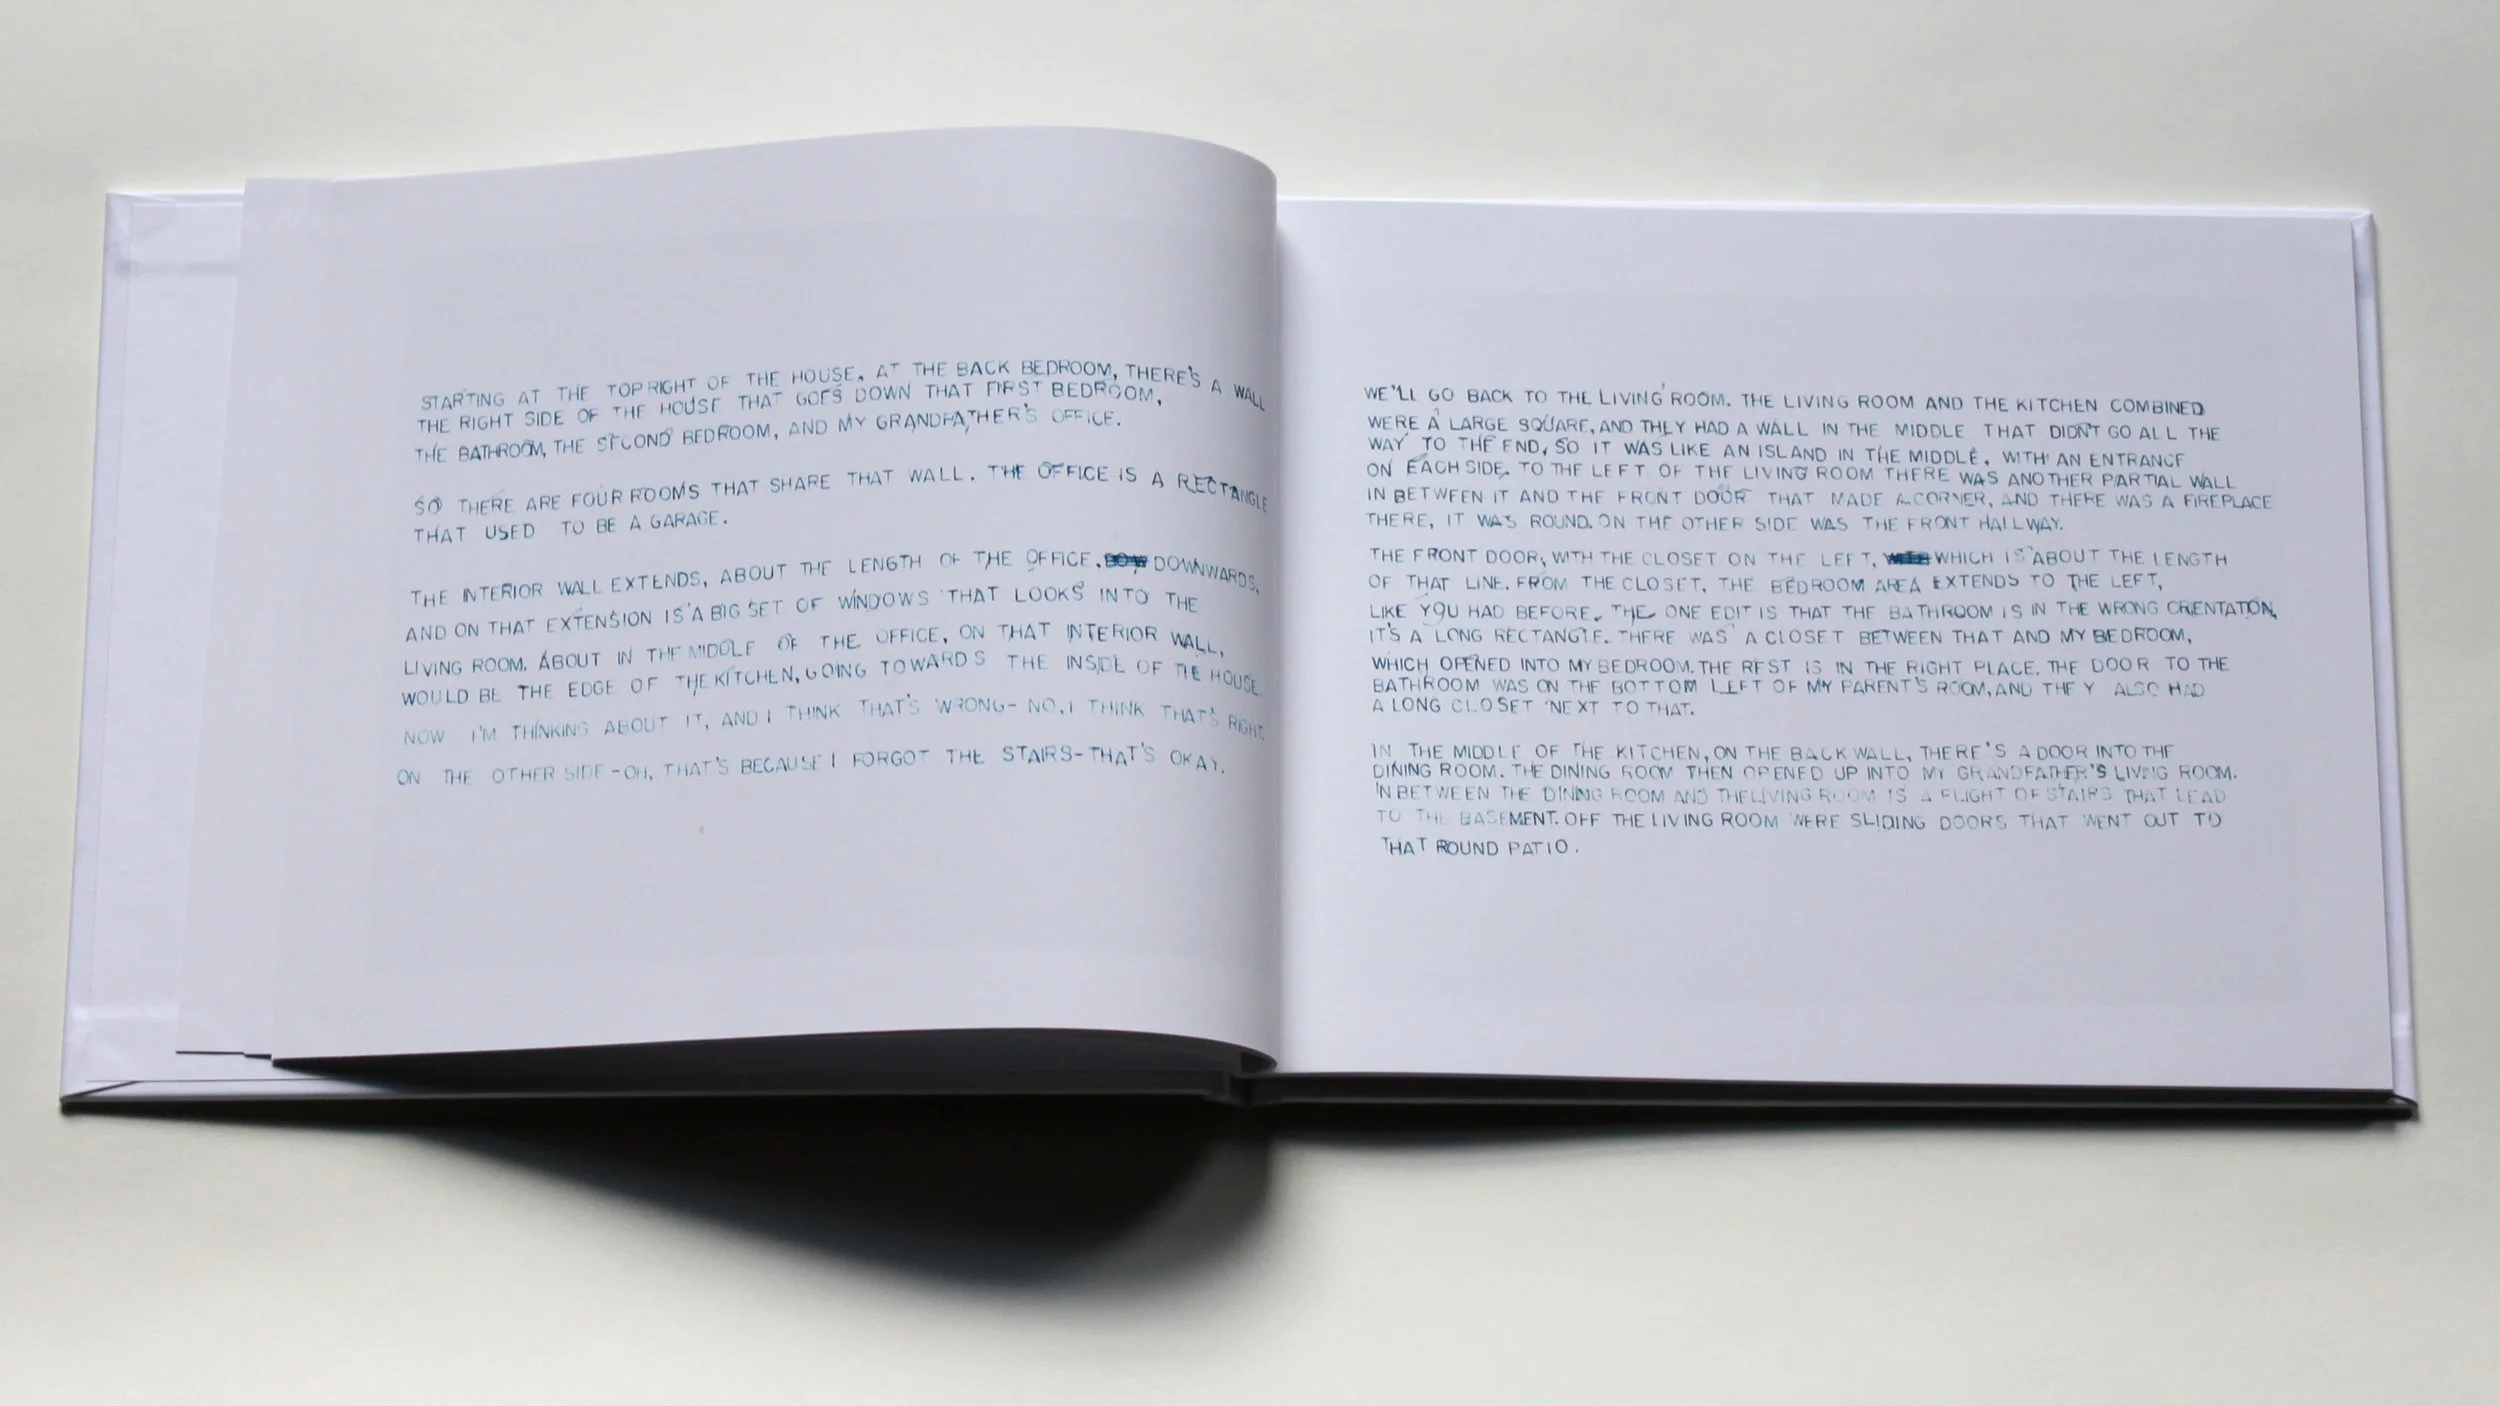 STARTING AT THE TOP RIGHT OF THE HOUSE, AT THE BACK BEDROOM, THERE'S A WALL
THE RIGHT SIDE OF THE HOUSE THAT GOES DOWN THAT FIRST BEDROOM,
THE BATHROOM, THE SECOND BEDROOM, AND MY GRANDFATHER'S OFFICE.
SO THERE ARE FOUR ROOMS THAT SHARE THAT WALL. THE OFFICE IS A RECTANGLE
THAT USED TO BE A GARAGE.
THE INTERIOR WALL EXTENDS, ABOUT THE LENGTH OF THE OFFICE, DOWNWARDS,
AND ON THAT EXTENSION IS A BIG SET OF WINDOWS THAT LOOKS INTO THE
LIVING ROOM. ABOUT IN THE MIDDLE OF THE OFFICE, ON THAT INTERIOR WALL,
WOULD BE THE EDGE OF THE KITCHEN, GOING TOWARDS THE INSIDE OF THE HOUSE.
NOW I'M THINKING ABOUT IT, AND I THINK THAT'S WRONG- NO, I THINK THAT'S RIGHT.
ON THE OTHER SIDE - OH, THAT'S BECAUSE I FORGOT THE STAIRS- THAT'S OKAY.
WE'LL GO BACK TO THE LIVING ROOM. THE LIVING ROOM AND THE KITCHEN COMBINED
WERE A LARGE SQUARE, AND THEY HAD A WALL IN THE MIDDLE THAT DIDN'T GO ALL THE
WAY TO THE END, SO IT WAS LIKE AN ISLAND IN THE MIDDLE, WITH AN ENTRANCE
ON EACH SIDE. TO THE LEFT OF THE LIVING ROOM THERE WAS ANOTHER PARTIAL WALL
IN BETWEEN IT AND THE FRONT DOOR THAT MADE A CORNER, AND THERE WAS A FIREPLACE
THERE, IT WAS ROUND. ON THE OTHER SIDE WAS THE FRONT HALLWAY.
THE FRONT DOOR, WITH THE CLOSET ON THE LEFT, WHICH IS ABOUT THE LENGTH
OF THAT LINE. FROM THE CLOSET, THE BEDROOM AREA EXTENDS TO THE LEFT,
LIKE YOU HAD BEFORE. THE ONE EDIT IS THAT THE BATHROOM IS IN THE WRONG ORIENTATION,
IT'S A LONG RECTANGLE. THERE WAS A CLOSET BETWEEN THAT AND MY BEDROOM,
WHICH OPENED INTO MY BEDROOM. THE REST IS IN THE RIGHT PLACE. THE DOOR TO THE
BATHROOM WAS ON THE BOTTOM LEFT OF MY PARENT'S ROOM, AND THEY ALSO HAD
A LONG CLOSET NEXT TO THAT.
IN THE MIDDLE OF THE KITCHEN, ON THE BACK WALL, THERE'S A DOOR INTO THE
DINING ROOM. THE DINING ROOM THEN OPENED UP INTO MY GRANDFATHER'S LIVING ROOM.
IN BETWEEN THE DINING ROOM AND THE LIVING ROOM IS A FLIGHT OF STAIRS THAT LEAD
TO THE BASEMENT. OFF THE LIVING ROOM WERE SLIDING DOORS THAT WENT OUT TO
THAT ROUND PATIO.